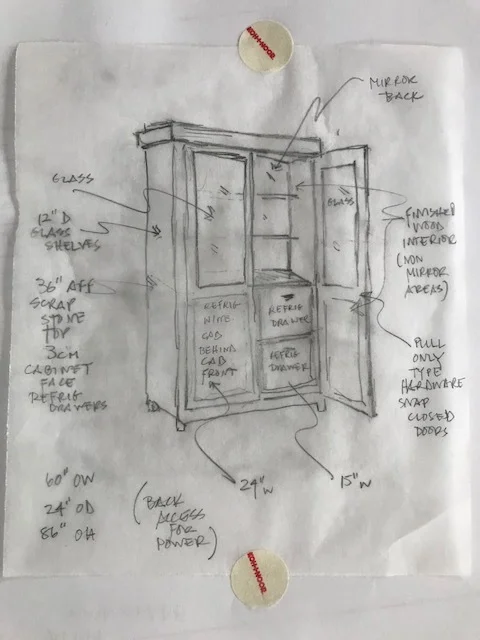 KOH-I-NOOR
MIRROR
BACK
GLASS
12" D
GLASS
SHELVES
GLASS
FINISHED
WOOD
INTERIOR
(NON
MIRROR
AREAS)
36" AFF
SCRAP
STONE
TOP
3CM
CABINET
FACE
REFRIG
DRAWERS
REFRIG
WINE
CAB
BEHIND
CAB
FRONT
REFRIG
DRAWER
REFRIG
DRAWER
PULL
ONLY
TYPE
HARDWARE
SNAP
CLOSED
DOORS
24" W
15" W
60" OW
24" OD
86" OH
(BACK
ACCESS
FOR
POWER)
KOH-I-NOOR